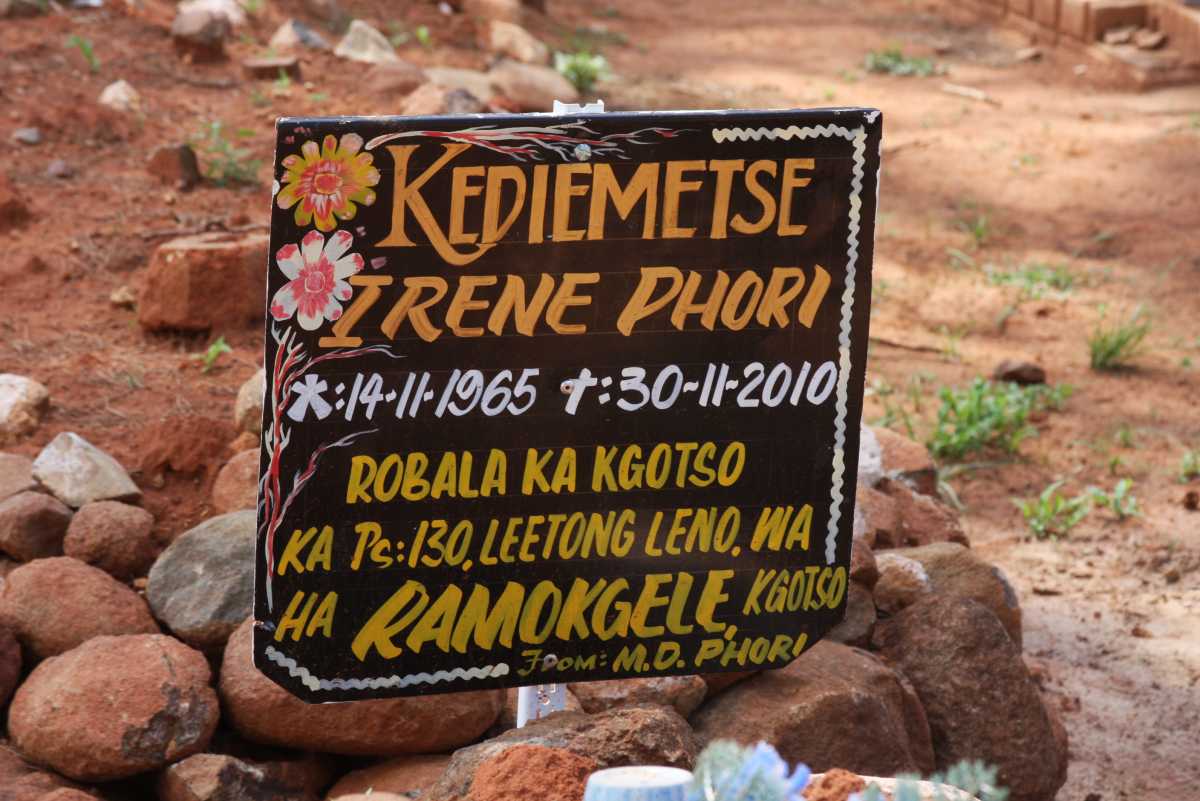 KEDIEMETSE
IRENE PHORI
*:14-11-1965 †:30-11-2010
ROBALA KA KGOTSO
KA Ps:130, LEETONG LENO. WA
HA RAMOKGELE, KGOTSO
From: M.D. PHORI